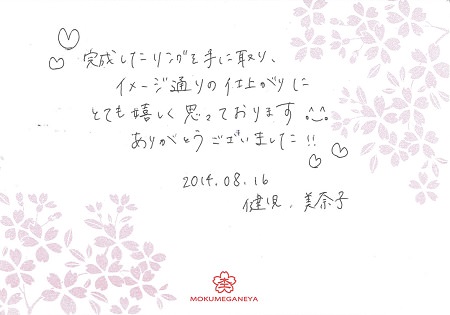 完成したリングを手に取り、
イメージ通りの仕上がりに
とても嬉しく思っております^^。
ありがとうございました!!
2014.08.16
健児、美奈子
MOKUMEGANEYA